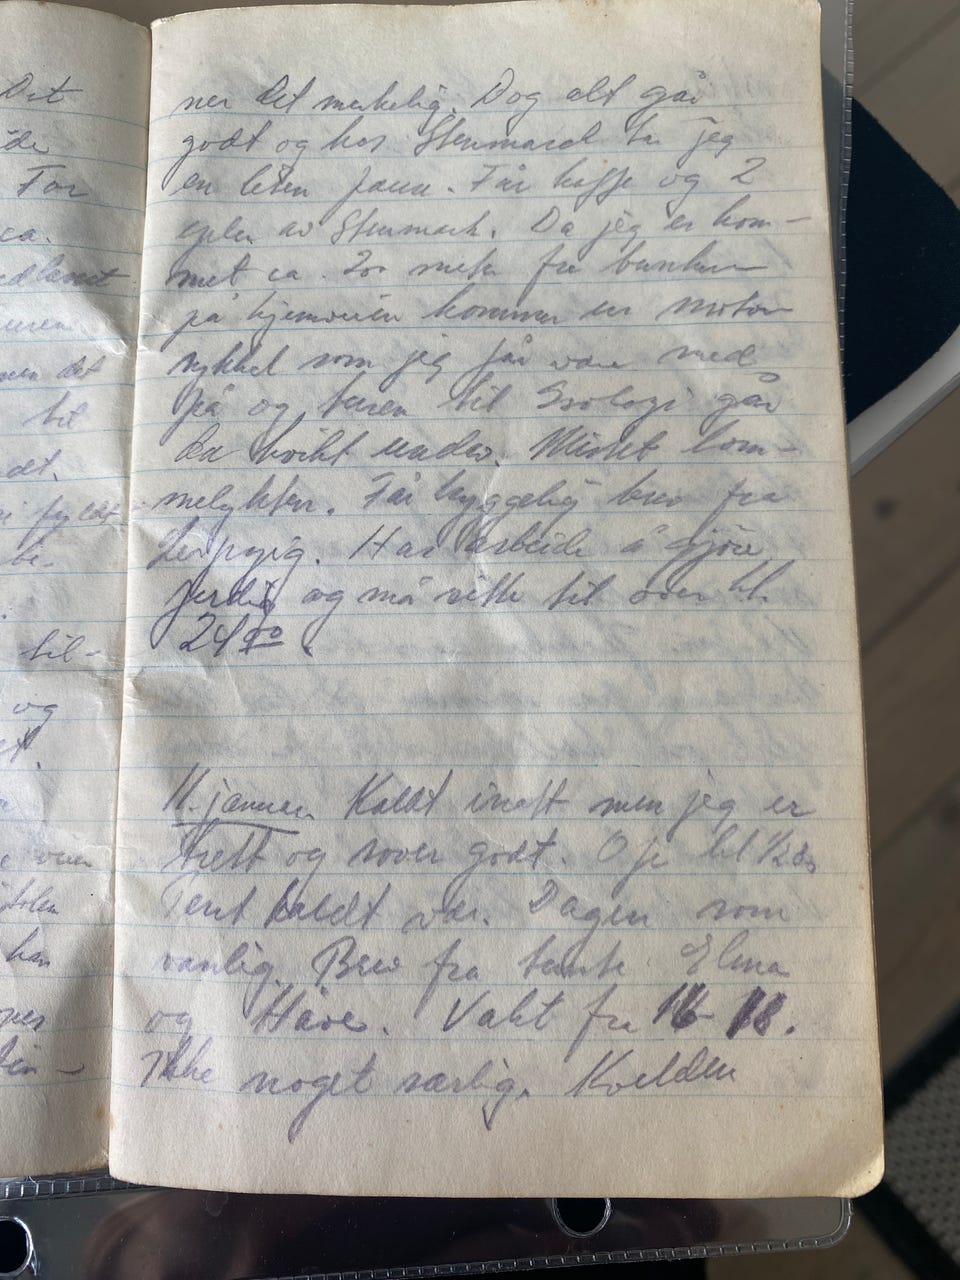 Det
For
ca.
men det
til
det.
be-
til-
og
han
ner det merkelig. Dog alt går
godt og hos Stenmark tar jeg
en liten pause. Får kaffe og 2
epler av Stenmark. Da jeg er kom-
met ca. 200 meter fra bunkeren
på hjemveien kommer en motor-
sykkel som jeg får være med
på og turen til går
da unda. Mistet lom-
melykten. Får hyggelig brev fra
Leipzig. Har arbeide å gjöre
ferdig og må sitte til over kl.
24 00.
11. januar Kaldt inatt men jeg er
trett og sover godt. Oppe kl ½ 8.
Pent kaldt vær. Dagen som
vanlig. Brev fra tante Elma
og Håve. Vakt fra 16-18.
Ikke noget særlig. Kvelden